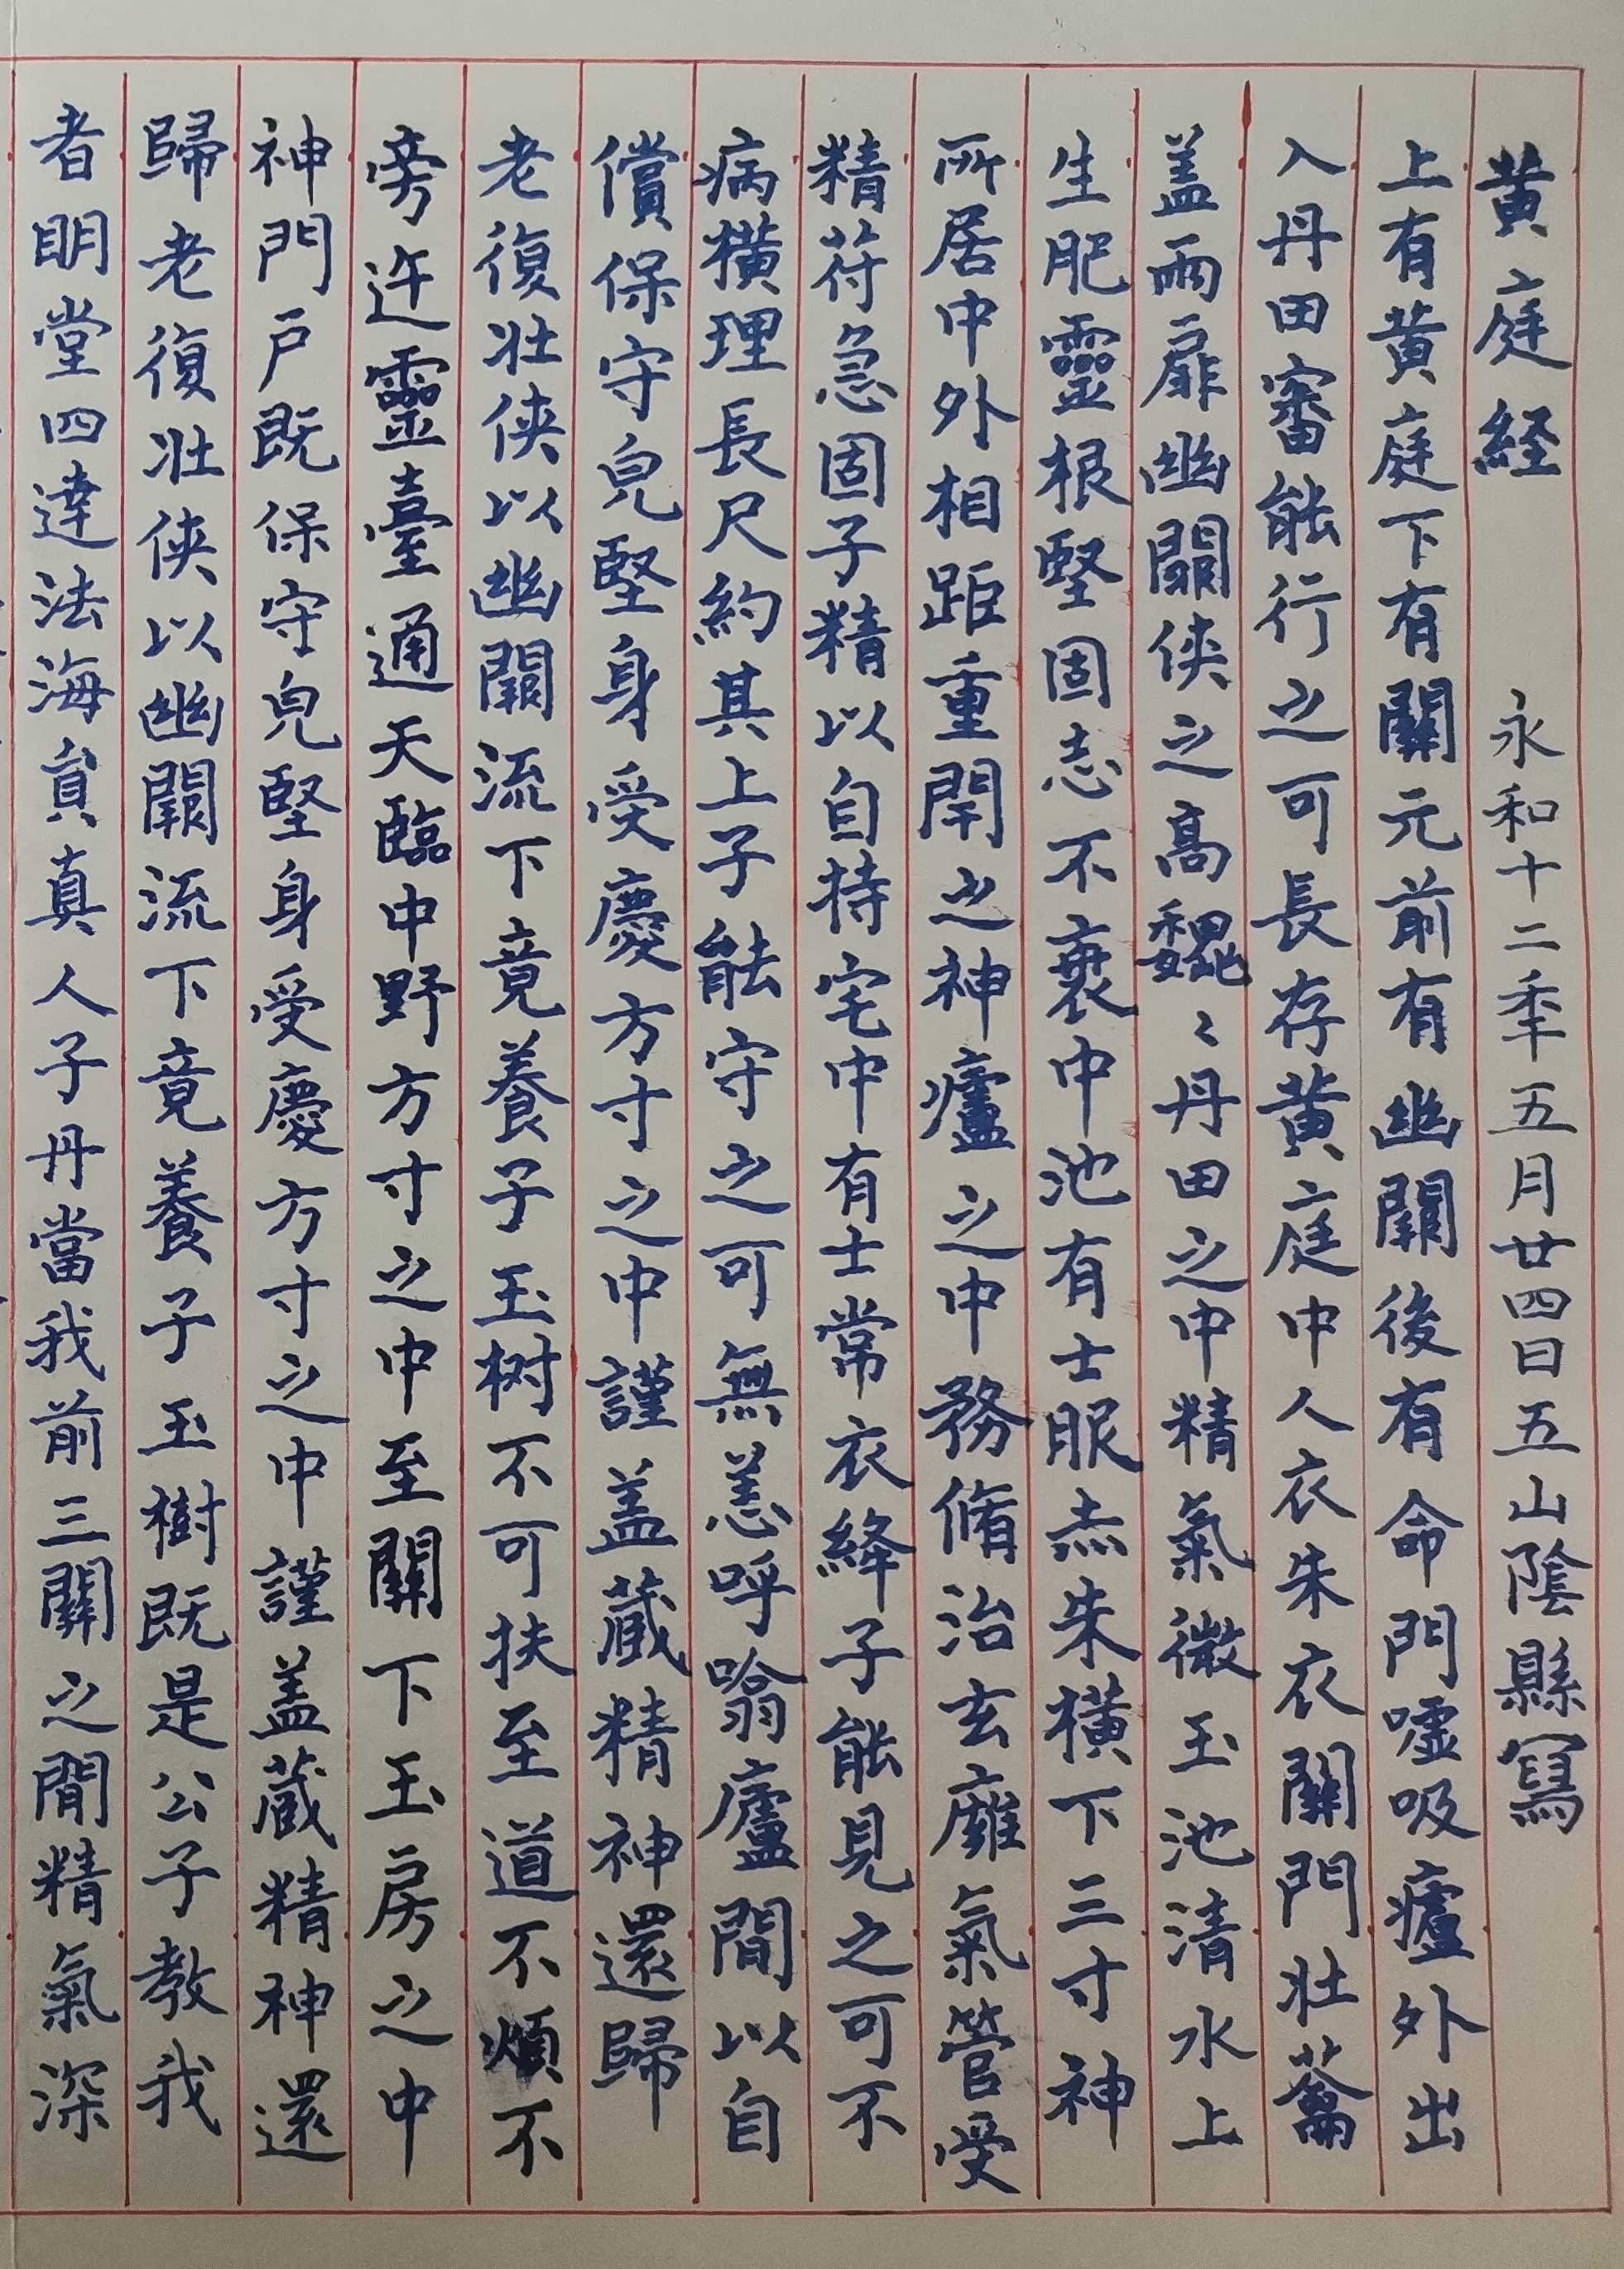 黄庭経 永和十二秊五月廿四日五山陰縣寫
上有黄庭下有關元前有幽闕後有命門噓吸廬外出
入丹田審能行之可長存黄庭中人衣朱衣關門壯蘥
盖兩扉幽闕侠之高魏〻丹田之中精氣微玉池清水上
生肥靈根堅固志不衰中池有士服赤朱横下三寸神
所居中外相距重閇之神廬之中務脩治玄癰氣管受
精苻急固子精以自持宅中有士常衣絳子能見之可不
病横理長尺約其上子能守之可無恙呼噏廬間以自
償保守皃堅身受慶方寸之中謹盖蔵精神還歸
老復壯侠以幽闕流下竟養子玉树不可扶至道不煩不
旁迕靈臺通天臨中野方寸之中至關下玉房之中
神門户既保守皃堅身受慶方寸之中謹盖蔵精神還
歸老復壯侠以幽闕流下竟養子玉樹既是公子教我
者明堂四達法海負真人子丹當我前三關之間精氣深